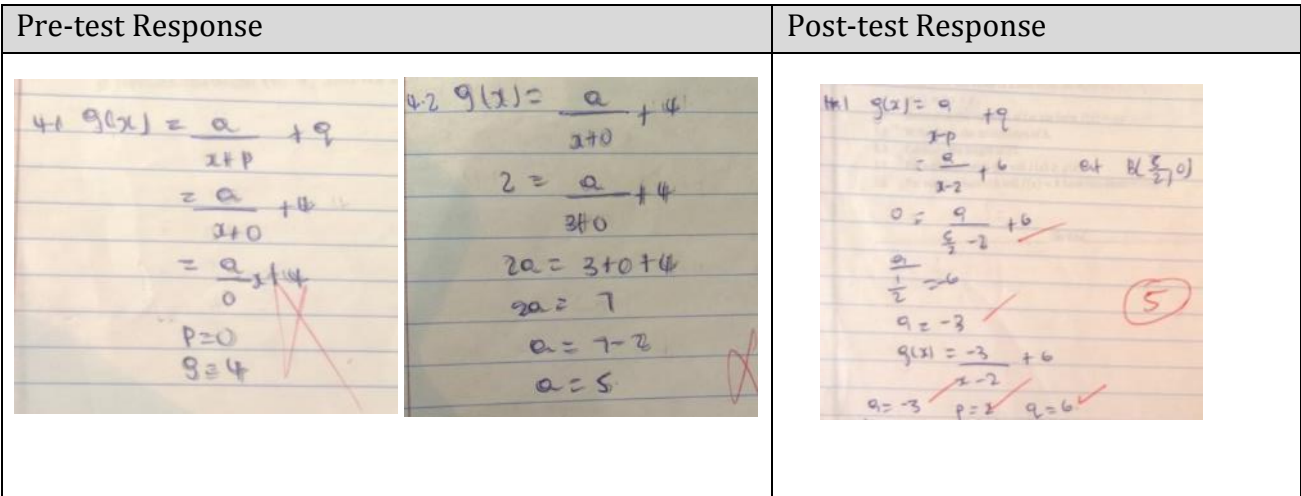 Pre-test Response
Post-test Response
4.1 g(x) = a/(x+p) + q
= a/(x+0) + 4
= a/0 x+4
P=0
q=4
4.2 g(x) = a/(x+0) + 4
2 = a/(3+0) + 4
2a = 3+0+4
2a = 7
a = 7-2
a = 5
g(x) = a/(x-p) + q
= a/(x-2) + 6 B(5/2, 0)
0 = a/(5/2 - 2) + 6
a/(1/2) = -6
a = -3
5
g(x) = -3/(x-2) + 6
a = -3 p = 2 q = 6